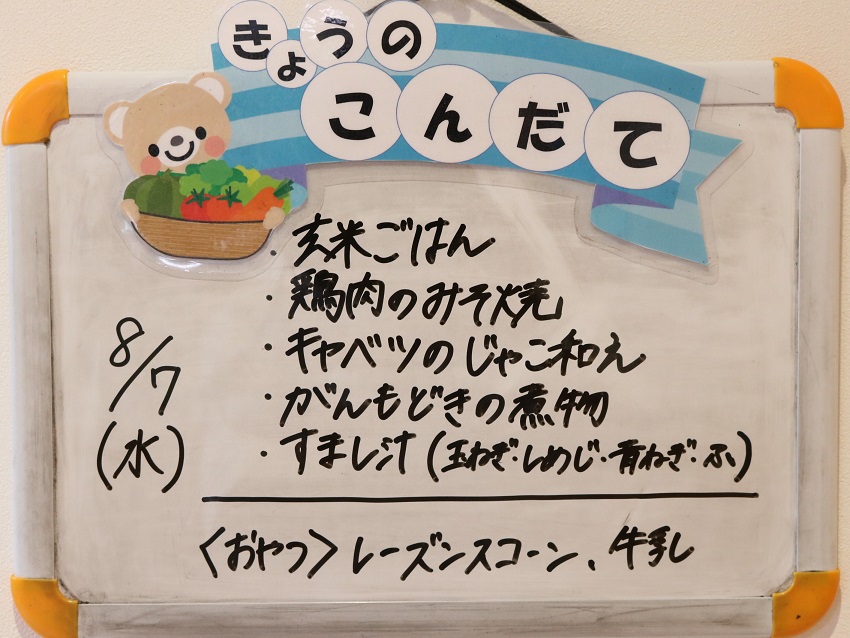 きょうの
こんだて
8/7
(水)
・玄米ごはん
・鶏肉のみそ焼
・キャベツのじゃこ和え
・がんもどきの煮物
・すまし汁(玉ねぎ・しめじ・青ねぎ・ふ)
〈おやつ〉レーズンスコーン、牛乳